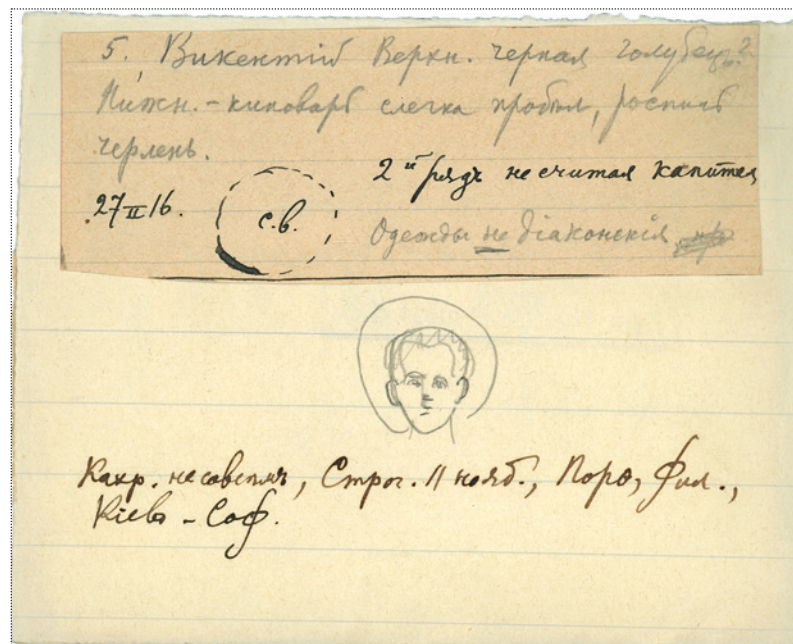 5. Викентій Верхн. черная голубец?
Нижн. - киноварь слегка пробѣл, роспись
черлень.
2й рядъ не считая капител
27 II 16.
с.в.
Одежды не діаконскія
Строг. 11 нояб., Порф, Фил.,
Кіево - Соф.